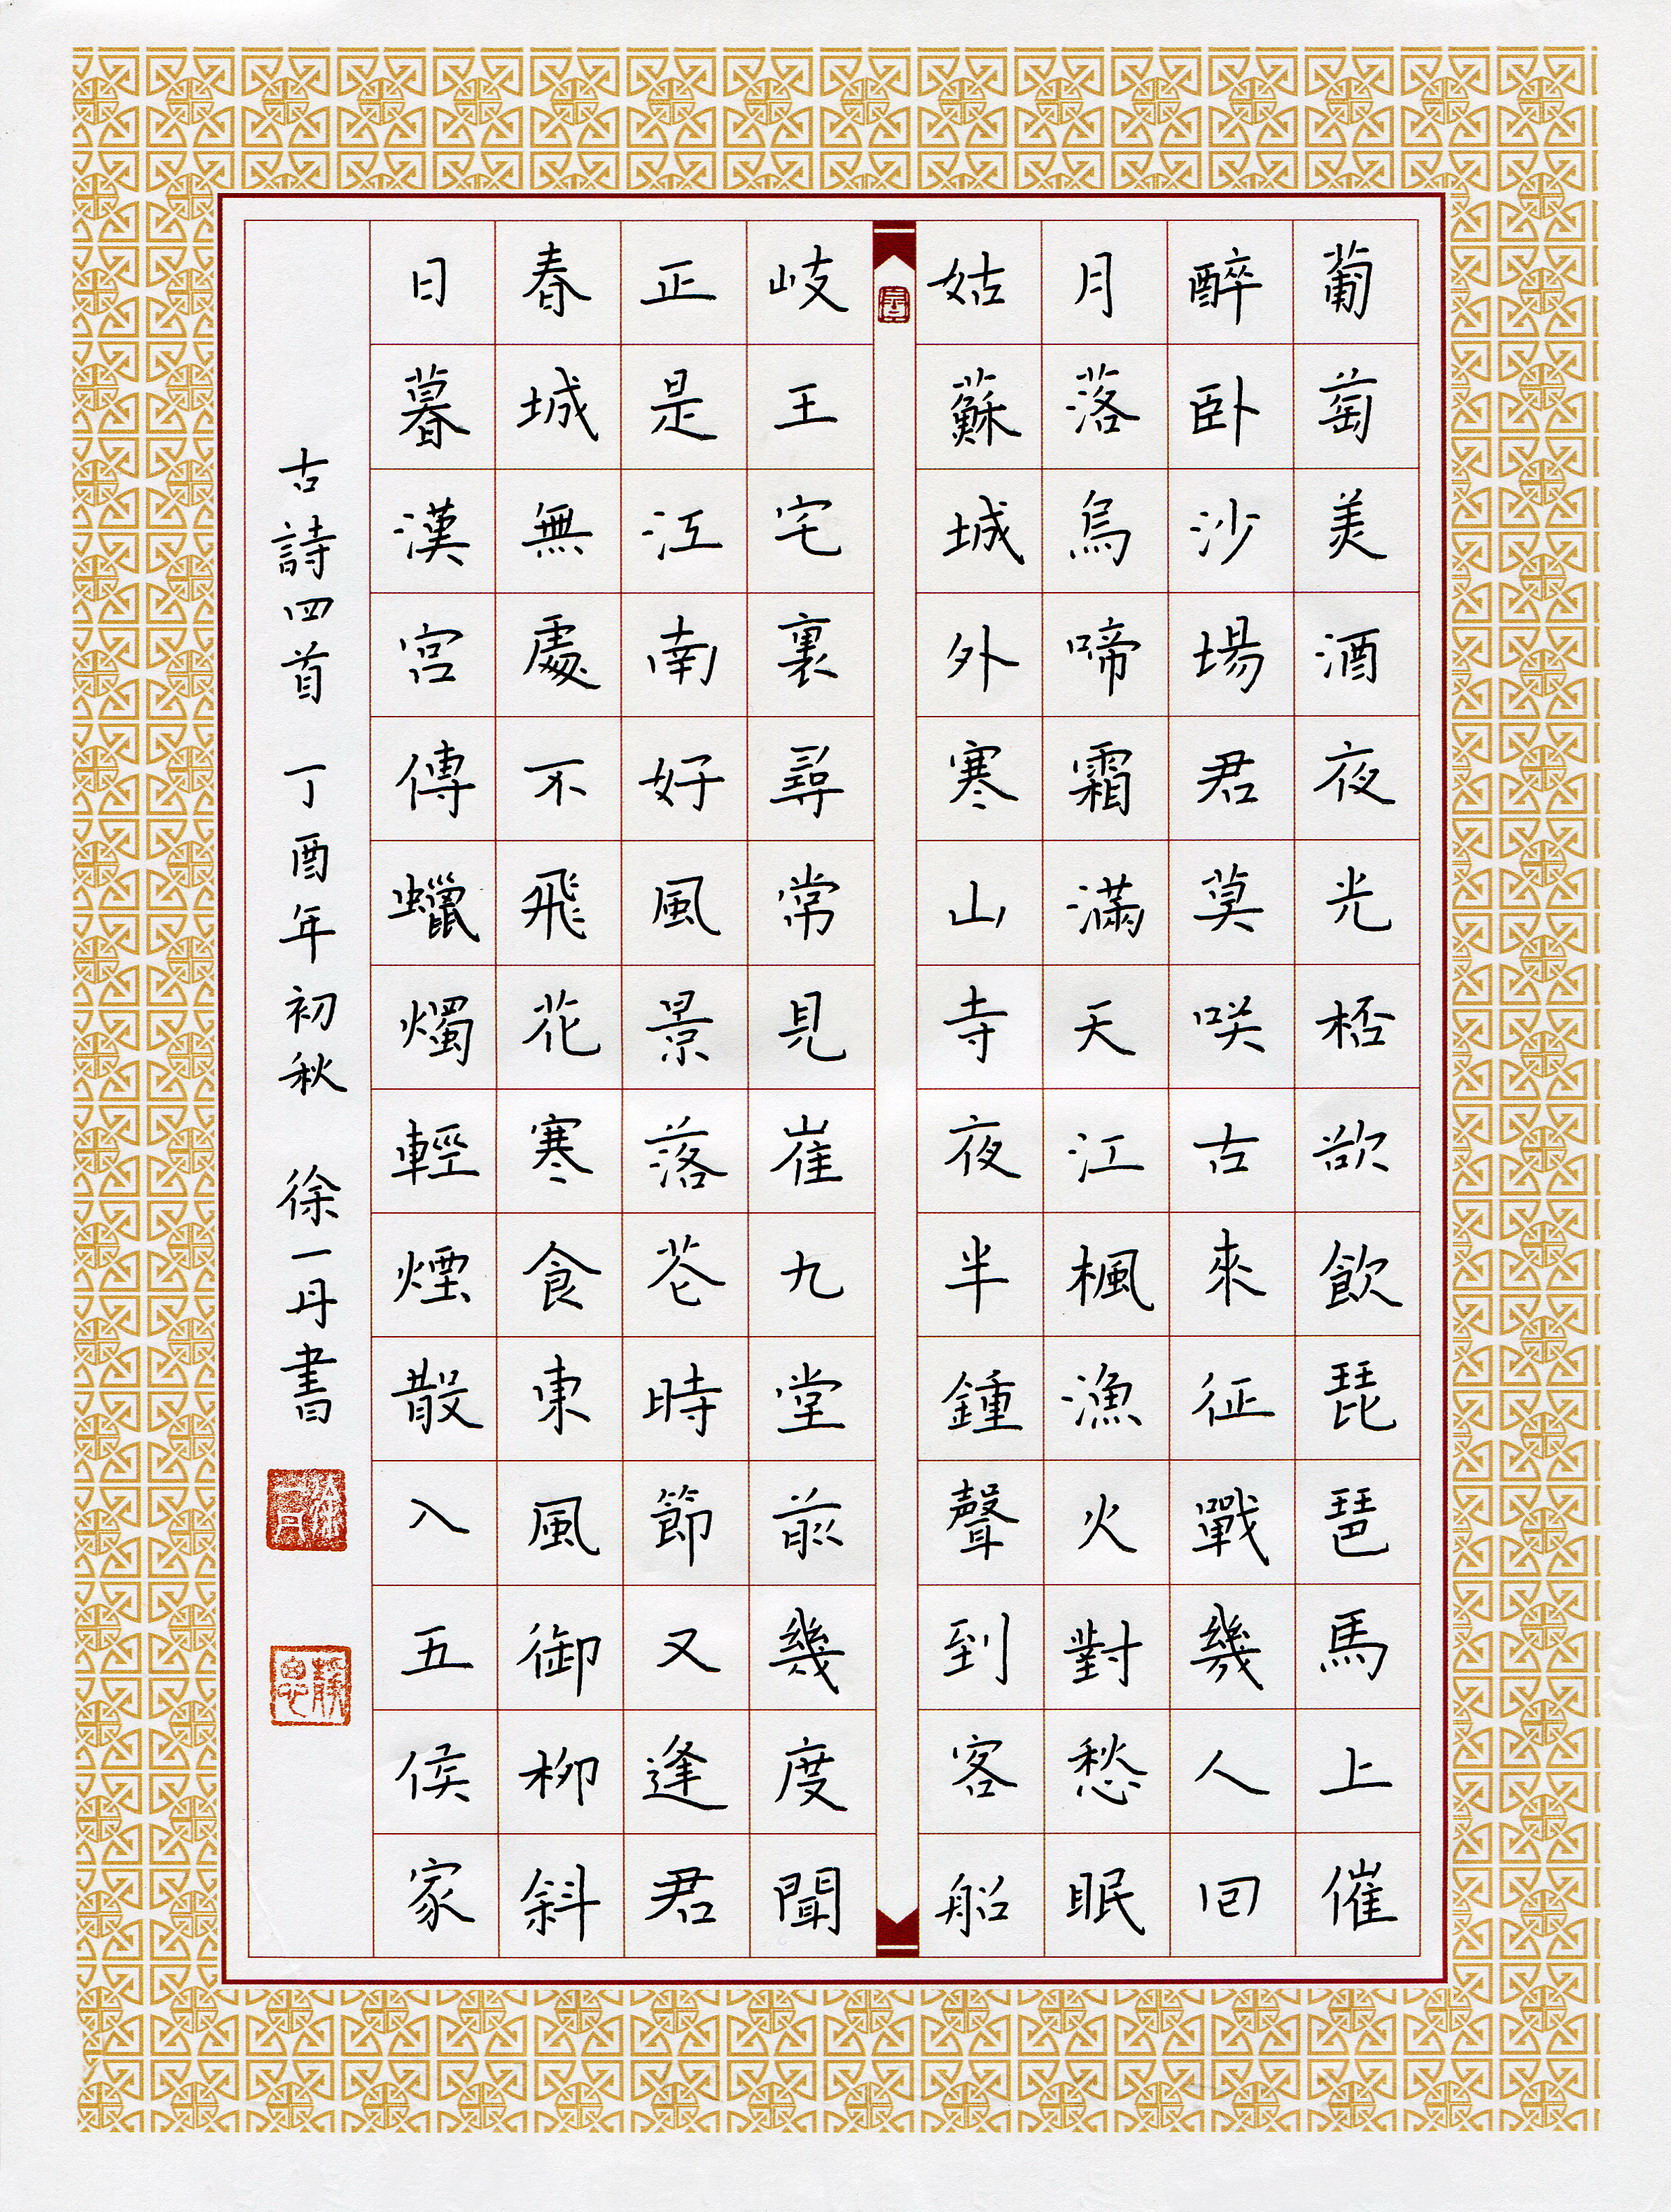 葡萄美酒夜光桮欲飲琵琶馬上催
醉卧沙場君莫咲古來征戰幾人回
月落烏啼霜滿天江楓漁火對愁眠
姑蘇城外寒山寺夜半鍾聲到客船
岐王宅裏尋常見崔九堂前幾度聞
正是江南好風景落花時節又逢君
春城無處不飛花寒食東風御柳斜
日暮漢宮傳蠟燭輕煙散入五侯家
古詩四首 丁酉年初秋 徐一丹書
徐一丹
靜思